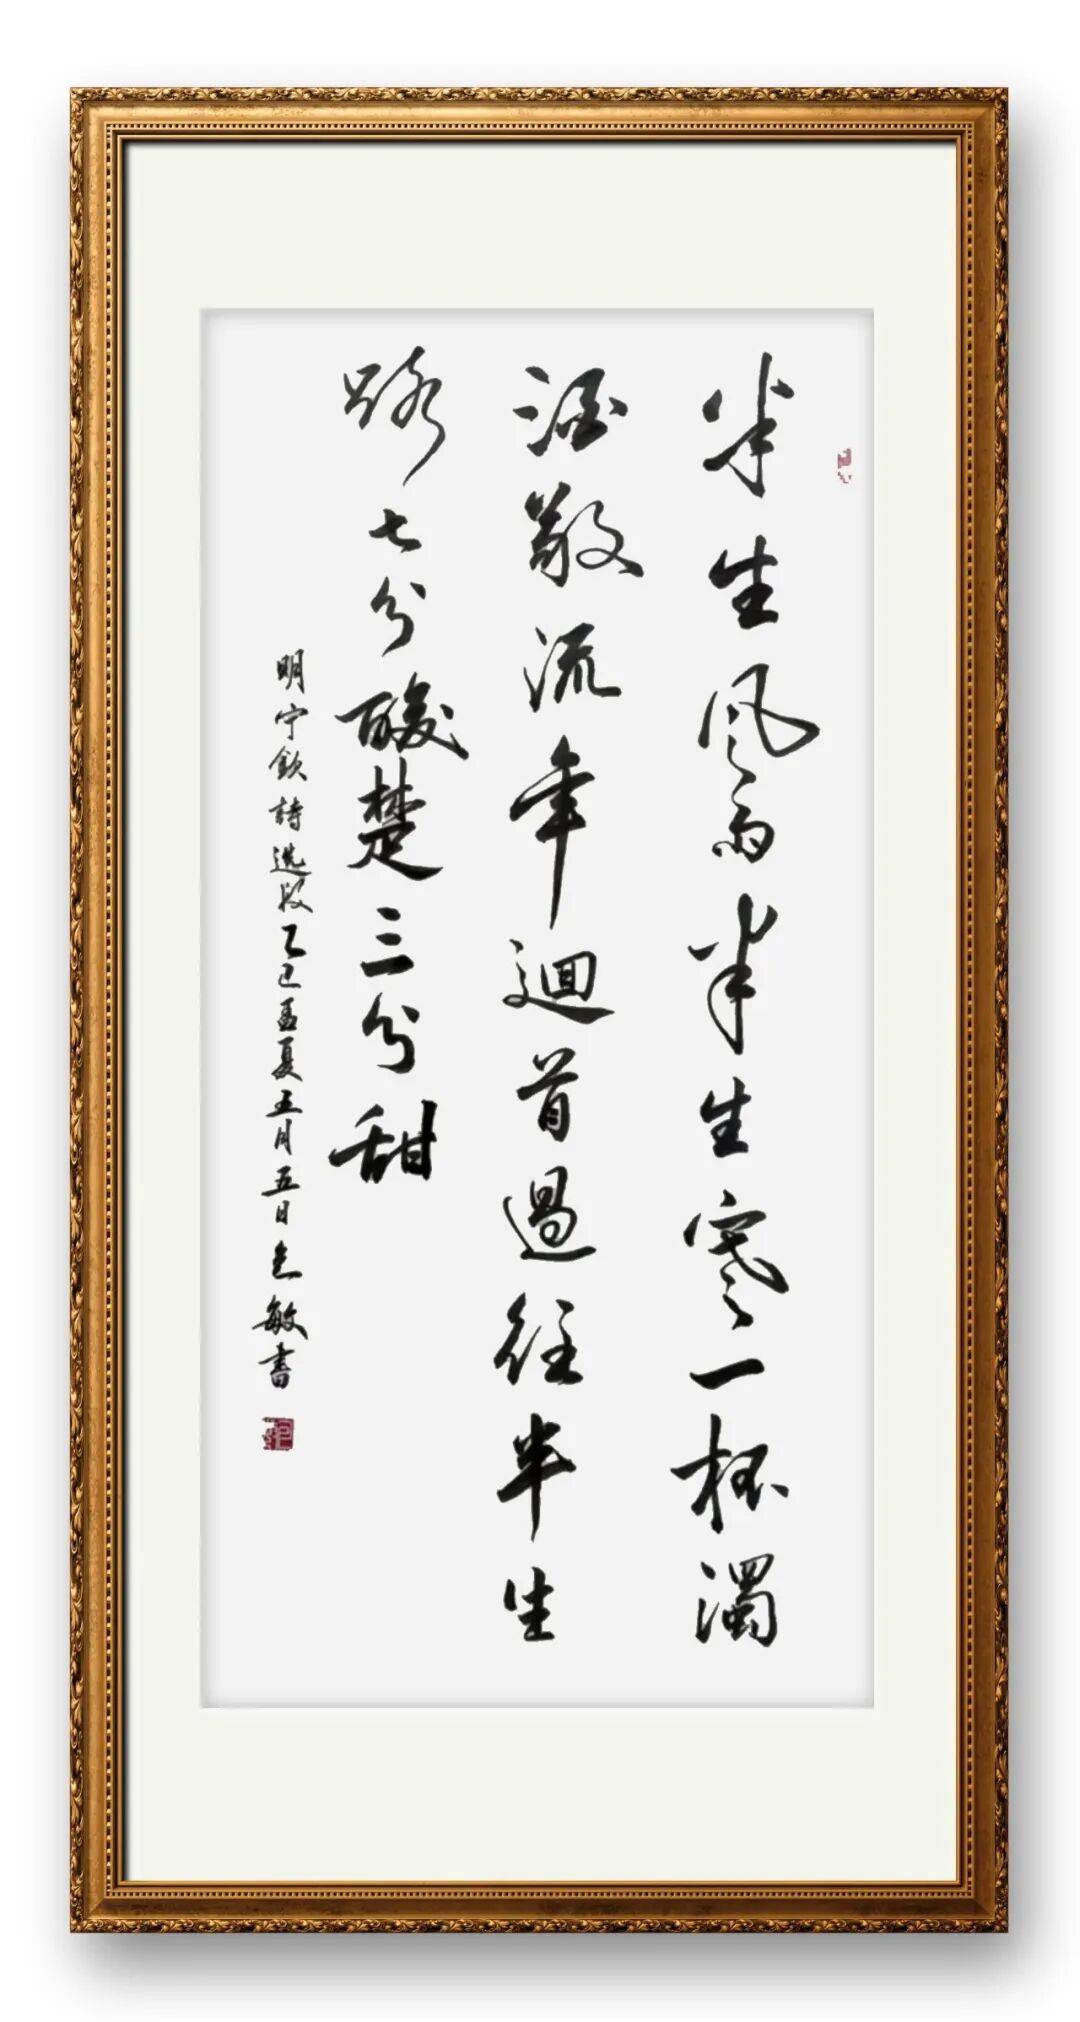 半生风雨半生寒一杯濁
酒敬流年迴首過往半生
路七分酸楚三分甜
明宁欽詩选段乙巳孟夏五月五日色敏書